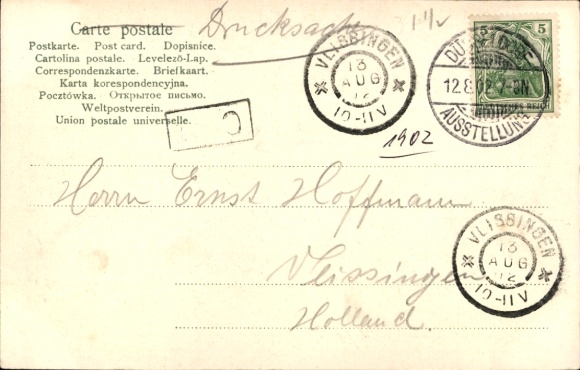 Carte postale Drucksache
Postkarte. Post card. Dopisnice.
Cartolina postale. Levelező-Lap.
Correspondenzkarte. Briefkaart.
Karta korespondencyjna.
Pocztówka. Открытое письмо.
Weltpostverein.
Union postale universelle.
C
VLISSINGEN
13
AUG
12
10-11V
12.8.02.7-8N
AUSSTELLUNG
5
1902
Herrn Ernst Hoffmann
Vlissingen
Holland.
VLISSINGEN
13
AUG
12
10-11V